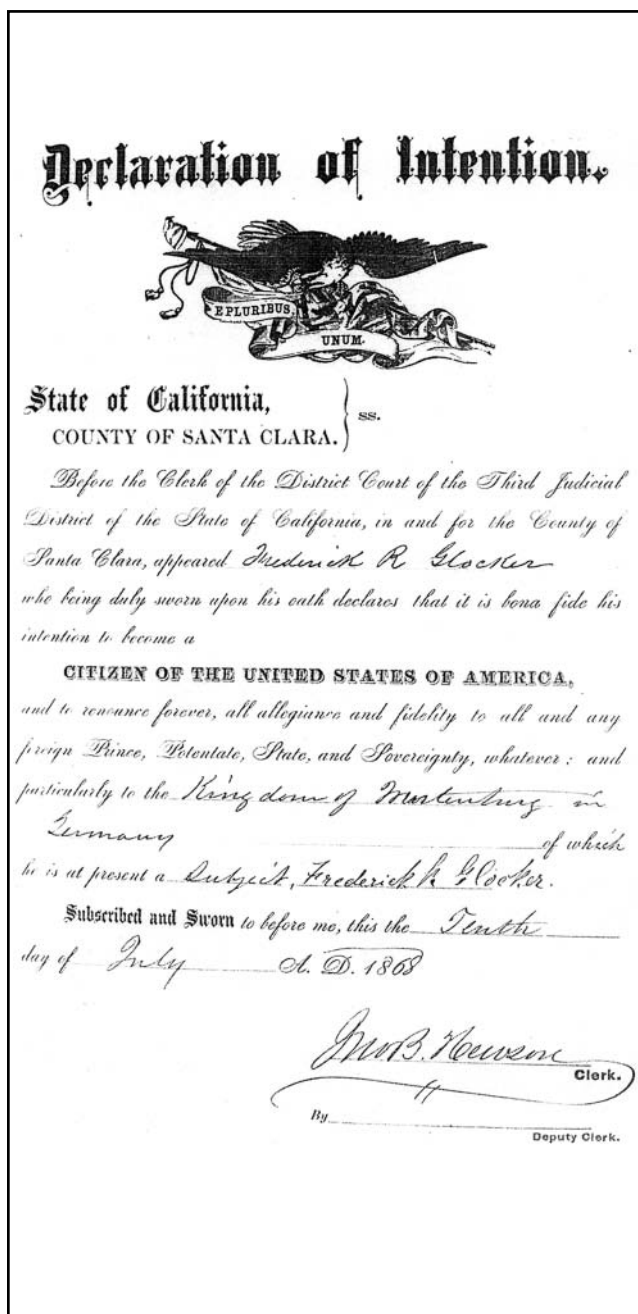 Declaration of Intention.
E PLURIBUS
UNUM.
State of California,
COUNTY OF SANTA CLARA. } ss.
Before the Clerk of the District Court of the Third Judicial
District of the State of California, in and for the County of
Santa Clara, appeared Frederick R Glocker
who being duly sworn upon his oath declares that it is bona fide his
intention to become a
CITIZEN OF THE UNITED STATES OF AMERICA,
and to renounce forever, all allegiance and fidelity to all and any
foreign Prince, Potentate, State, and Sovereignty, whatever: and
particularly to the Kingdom of Wurtenburg in
Germany of which
he is at present a Subject, Frederick R. Glocker.
Subscribed and Sworn to before me, this the Tenth
day of July A. D. 1868
Jno B. Hewson
Clerk.
By
Deputy Clerk.